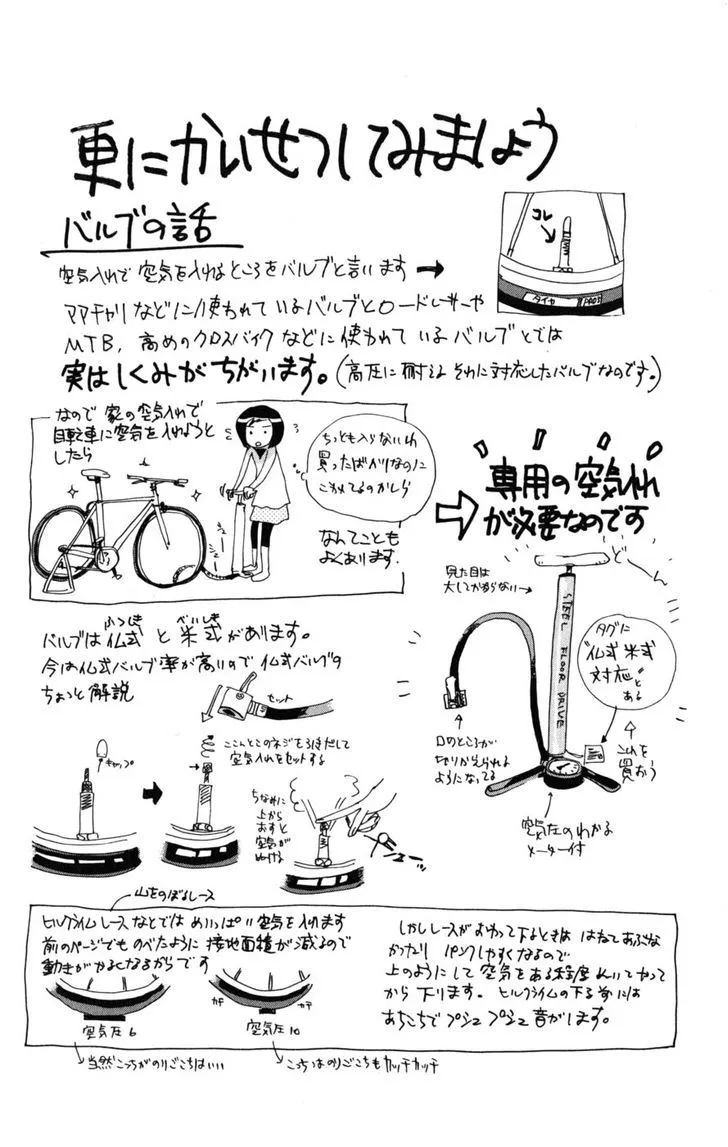 更にかいせつしてみましょう
バルブの話
コレ
タイヤ
空気入れで空気を入れるところをバルブと言います
ママチャリなどに使われているバルブとロードレーサーや
MTB、高めのクロスバイクなどに使われているバルブとでは
実はしくみがちがいます。(高圧に耐えるそれに対応したバルブなのです。)
なので家の空気入れで
自転車に空気を入れようと
したら
ちっとも入らないわ
買ったばかりなのに
こわれてるのかしら
なんてことも
よくあります。
専用の空気入れ
が必要なのです
どーん
見た目は
大してかわらない
STEEL FLOOR DRIVE
タグに
"仏式米式
対応"と
ある
これを
買おう
口のところが
切りかえられる
ようになってる
空気圧のわかる
メーター付
ふつしき べいしき
バルブは仏式と米式があります。
今は仏式バルブ率が高いので仏式バルブの
ちょっと解説
セット
キャップ
ここんとこのネジを引きだして
空気入れをセットする
ちなみに
上から
おすと
空気が
ぬける
山をのぼるレース
ヒルクライムレースなどではめいっぱい空気を入れます
前のページでものべたように接地面積が減るので
動きがかるくなるからです
空気圧6
カチ カチ
空気圧10
当然こっちがのりごこちはいい
こっちはのりごこちもカッチカッチ
しかしレースがおわって下るときは はねてあぶな
かったり パンクしやすくなるので
上のようにして空気をある程度ぬいてやって
から下ります。ヒルクライムの下る前には
あちこちでプシュプシュ音がします。